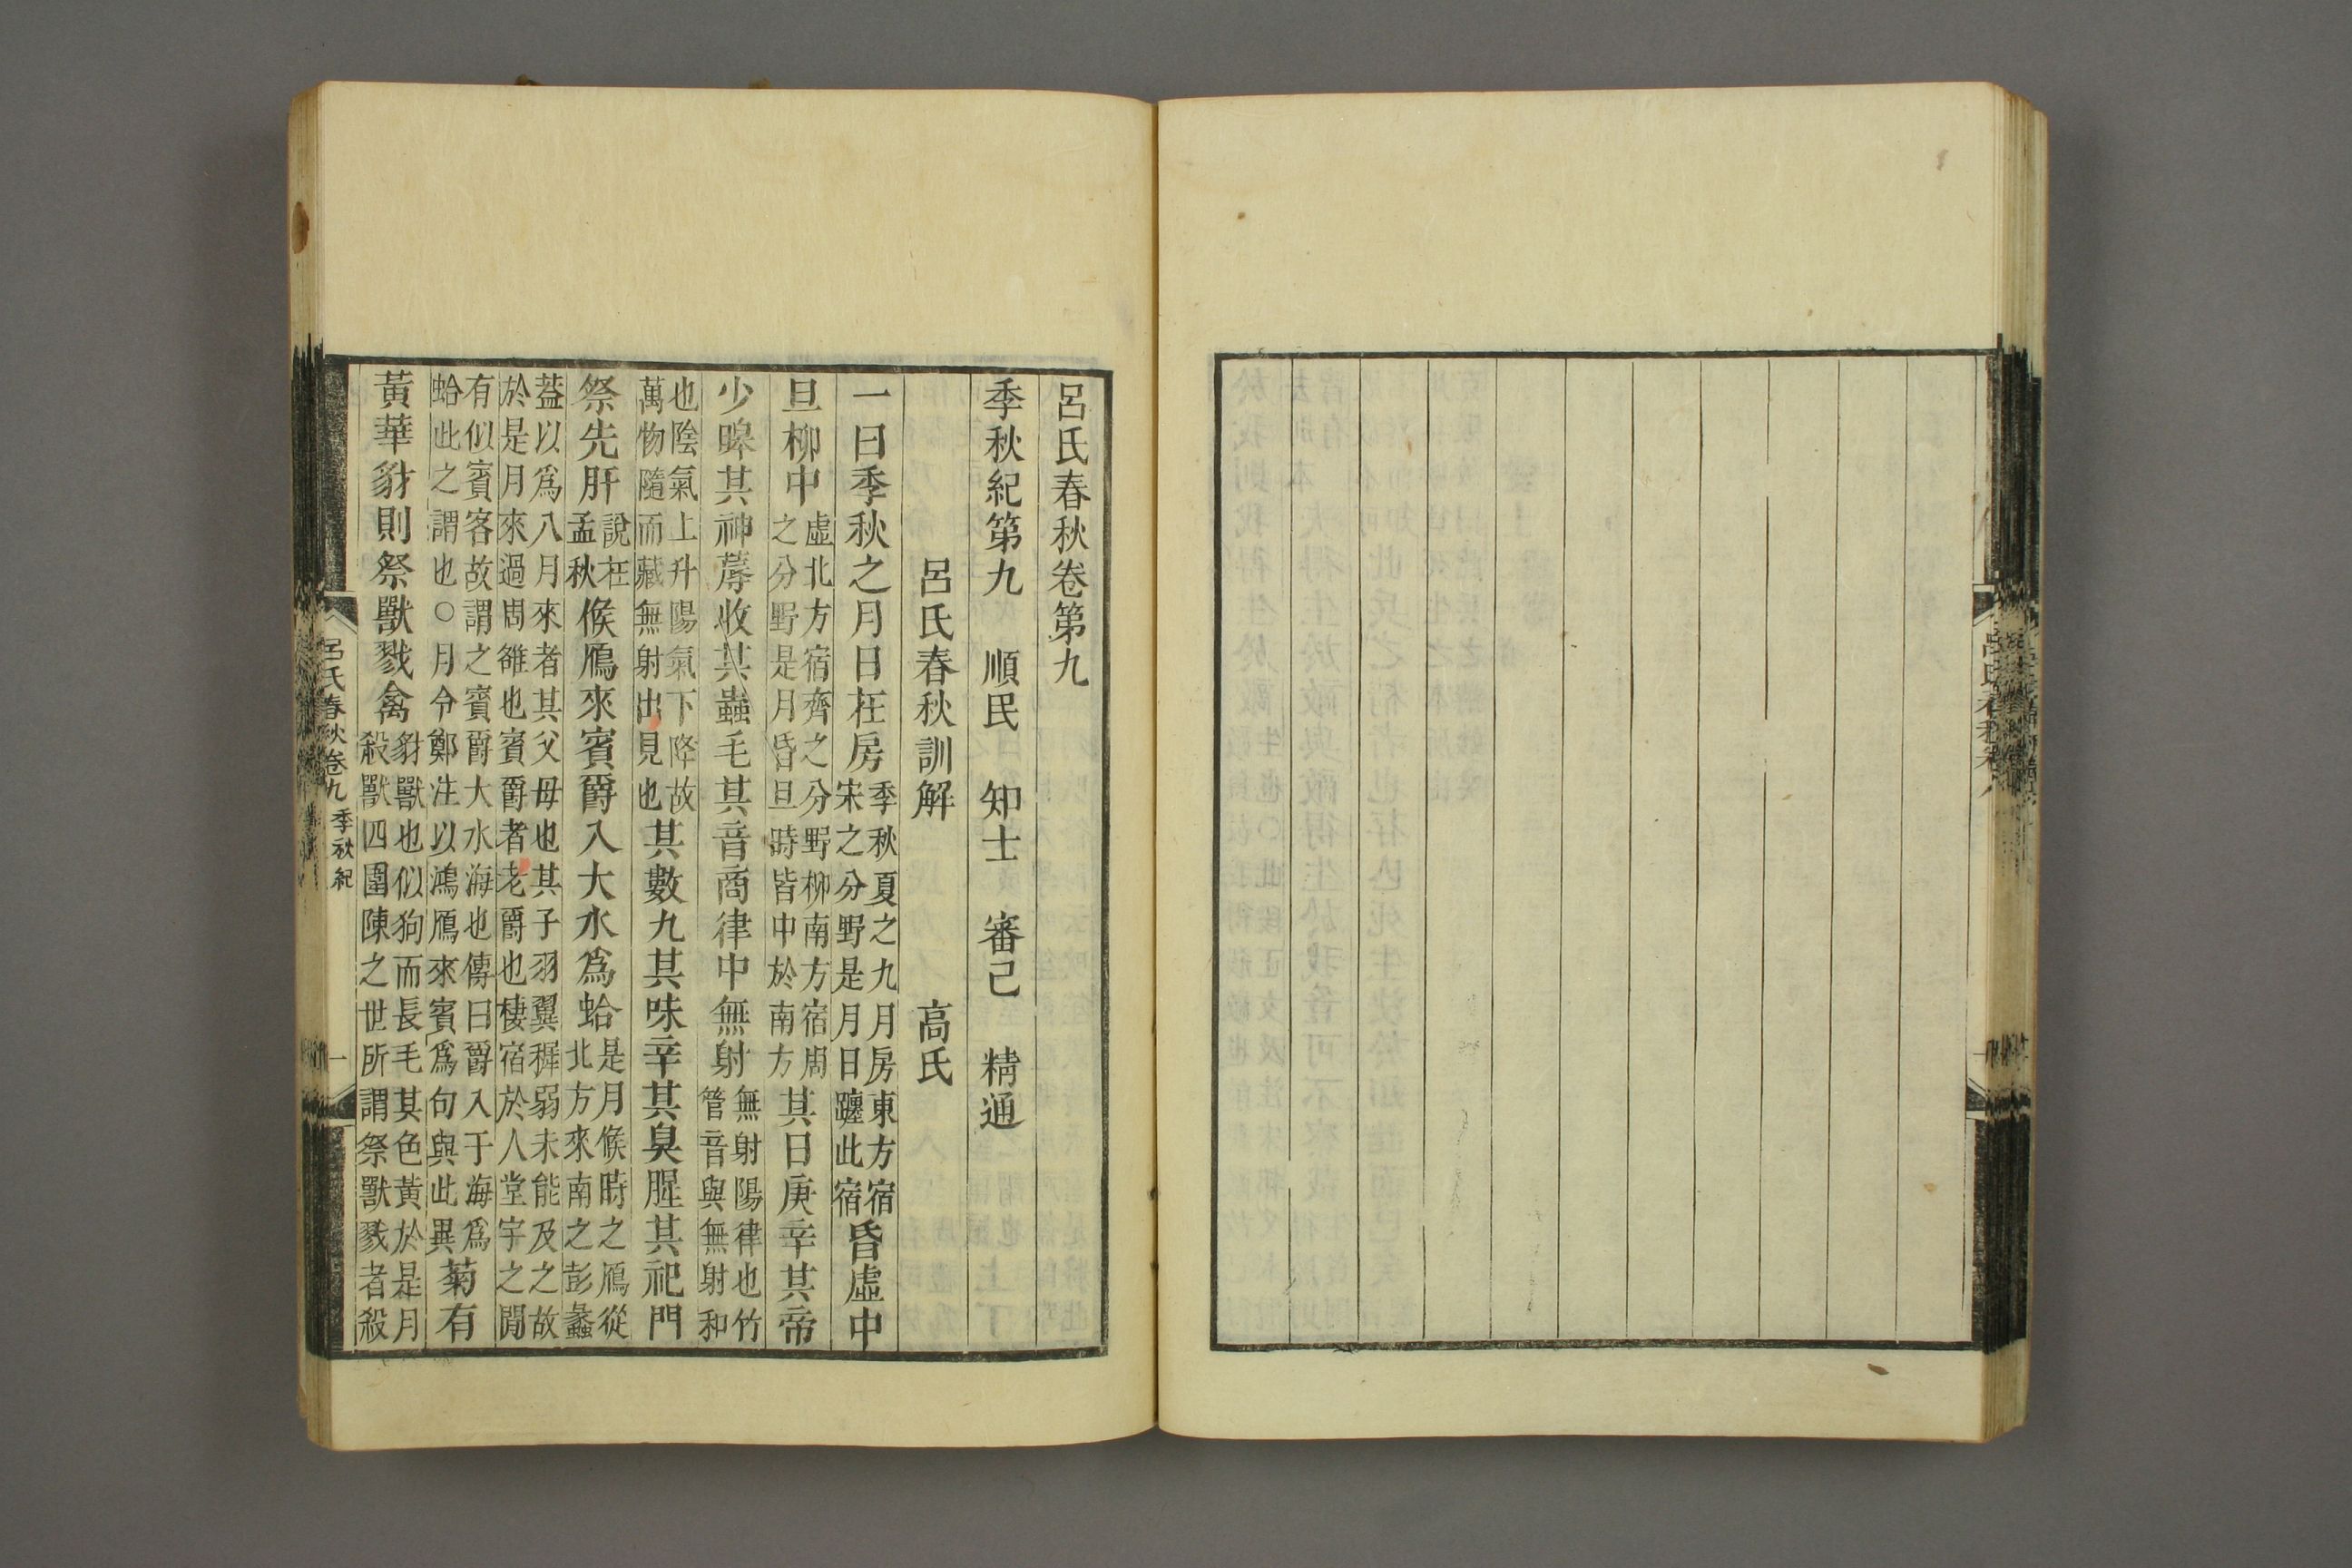 呂氏春秋卷第九
季秋紀第九　順民　知士　審己　精通
呂氏春秋訓解　高氏
一曰季秋之月日在房季秋夏之九月房東方宿宋之分野是月日躔此宿昏虛中
旦柳中虛北方宿齊之分野柳南方宿周之分野是月昏旦時皆中於南方其日庚辛其帝
少皞其神蓐收其蟲毛其音商律中無射無射陽律也竹管音與無射和
也陰氣上升陽氣下降故萬物隨而藏無射出見也其數九其味辛其臭腥其祀門
祭先肝說在孟秋候鴈來賓爵入大水爲蛤是月候時之鴈從北方來南之彭蠡
蓋以爲八月來者其父母也其子羽翼穉弱未能及之故於是月來過周雒也賓爵者老爵也棲宿於人堂宇之閒
有似賓客故謂之賓爵大水海也傳曰爵入于海爲蛤此之謂也○月令鄭注以鴻鴈來賓爲句與此異菊有
黃華豺則祭獸戮禽豺獸也似狗而長毛其色黃於是月殺獸四圍陳之世所謂祭獸戮者殺
呂氏春秋卷九　季秋紀　一
呂氏春秋卷八